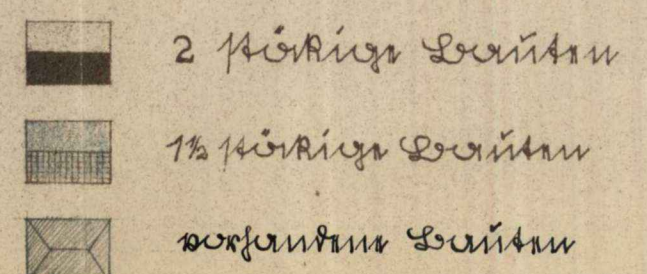 2 stökige Bauten
1½ stökige Bauten
vorhandene Bauten